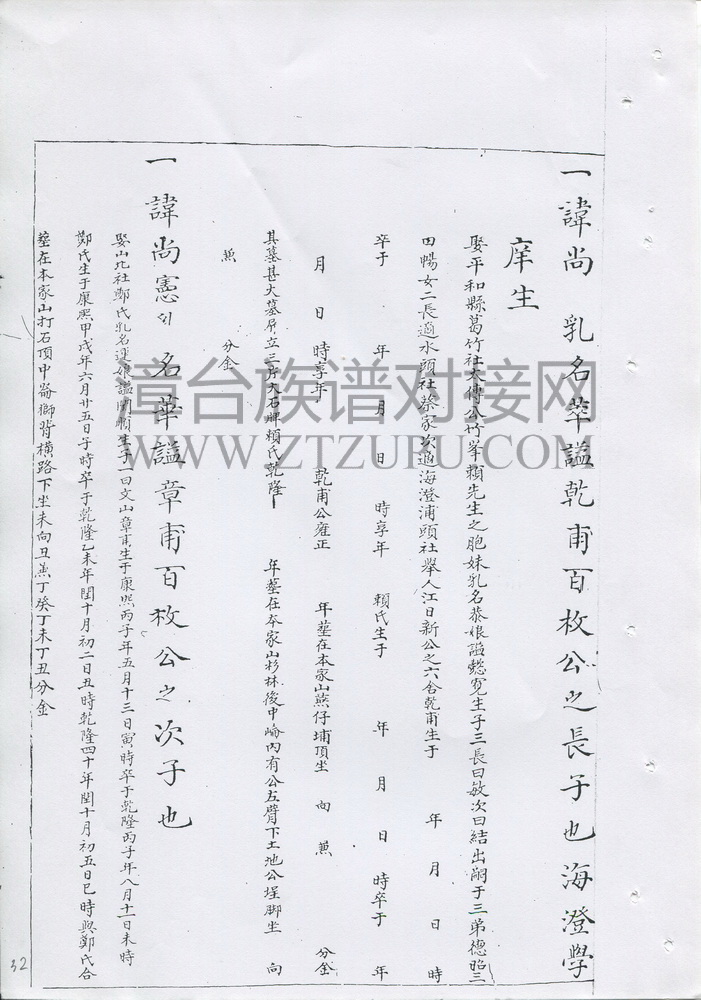 一諱尚 乳名莘謚乾甫百枚公之長子也海澄學
庠生
娶平和縣葛竹社太傅公竹峯賴先生之胞妹乳名恭娘謚懿寬生子三長曰敏次曰結出嗣于三弟德昭三
曰暢女二長適水頭社蔡家次適海澄浦頭社舉人江日新公之六舍乾甫生于 年 月 日 時
卒于 年 月 日 時享年 賴氏生于 年 月 日 時卒于 年
月 日 時享年 乾甫公雍正 年塟在本家山燕仔埔頂坐 向 兼 分金
其墓甚大墓屏立三片大石碑賴氏乾隆 年塟在本家山杉林後中崙內有公左臂下土地公埕脚坐 向
兼 分金
一諱尚憲 名華謚章甫百枚公之次子也
娶山北社鄭氏乳名運娘謚閒賴生子一曰文山章甫生于康熙丙子年五月十三日寅時卒于乾隆丙子年八月十一日未時
鄭氏生于康熙甲戌年六月廿五日子時卒于乾隆乙未年閏十月初二日丑時乾隆四十年閏十月初五日巳時與鄭氏合
塟在本家山打石頂中崙獅背橫路下坐未向丑兼丁癸丁未丁丑分金
32
章台族谱对接网
WWW.ZTZUPU.COM